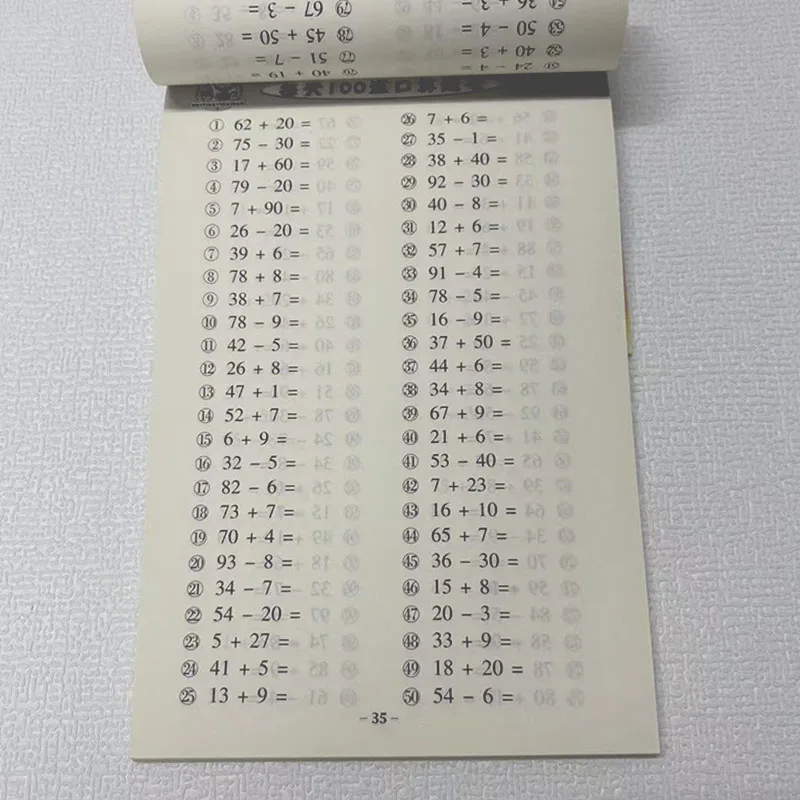 每天100道口算题卡
① 62 + 20 =
② 75 − 30 =
③ 17 + 60 =
④ 79 − 20 =
⑤ 7 + 90 =
⑥ 26 − 20 =
⑦ 39 + 6 =
⑧ 78 + 8 =
⑨ 38 + 7 =
⑩ 78 − 9 =
⑪ 42 − 5 =
⑫ 26 + 8 =
⑬ 47 + 1 =
⑭ 52 + 7 =
⑮ 6 + 9 =
⑯ 32 − 5 =
⑰ 82 − 6 =
⑱ 73 + 7 =
⑲ 70 + 4 =
⑳ 93 − 8 =
㉑ 34 − 7 =
㉒ 54 − 20 =
㉓ 5 + 27 =
㉔ 41 + 5 =
㉕ 13 + 9 =
㉖ 7 + 6 =
㉗ 35 − 1 =
㉘ 38 + 40 =
㉙ 92 − 30 =
㉚ 40 − 8 =
㉛ 12 + 6 =
㉜ 57 + 7 =
㉝ 91 − 4 =
㉞ 78 − 5 =
㉟ 16 − 9 =
㊱ 37 + 50 =
㊲ 44 + 6 =
㊳ 34 + 8 =
㊴ 67 + 9 =
㊵ 21 + 6 =
㊶ 53 − 40 =
㊷ 7 + 23 =
㊸ 16 + 10 =
㊹ 65 + 7 =
㊺ 36 − 30 =
㊻ 15 + 8 =
㊼ 20 − 3 =
㊽ 33 + 9 =
㊾ 18 + 20 =
㊿ 54 − 6 =
- 35 -